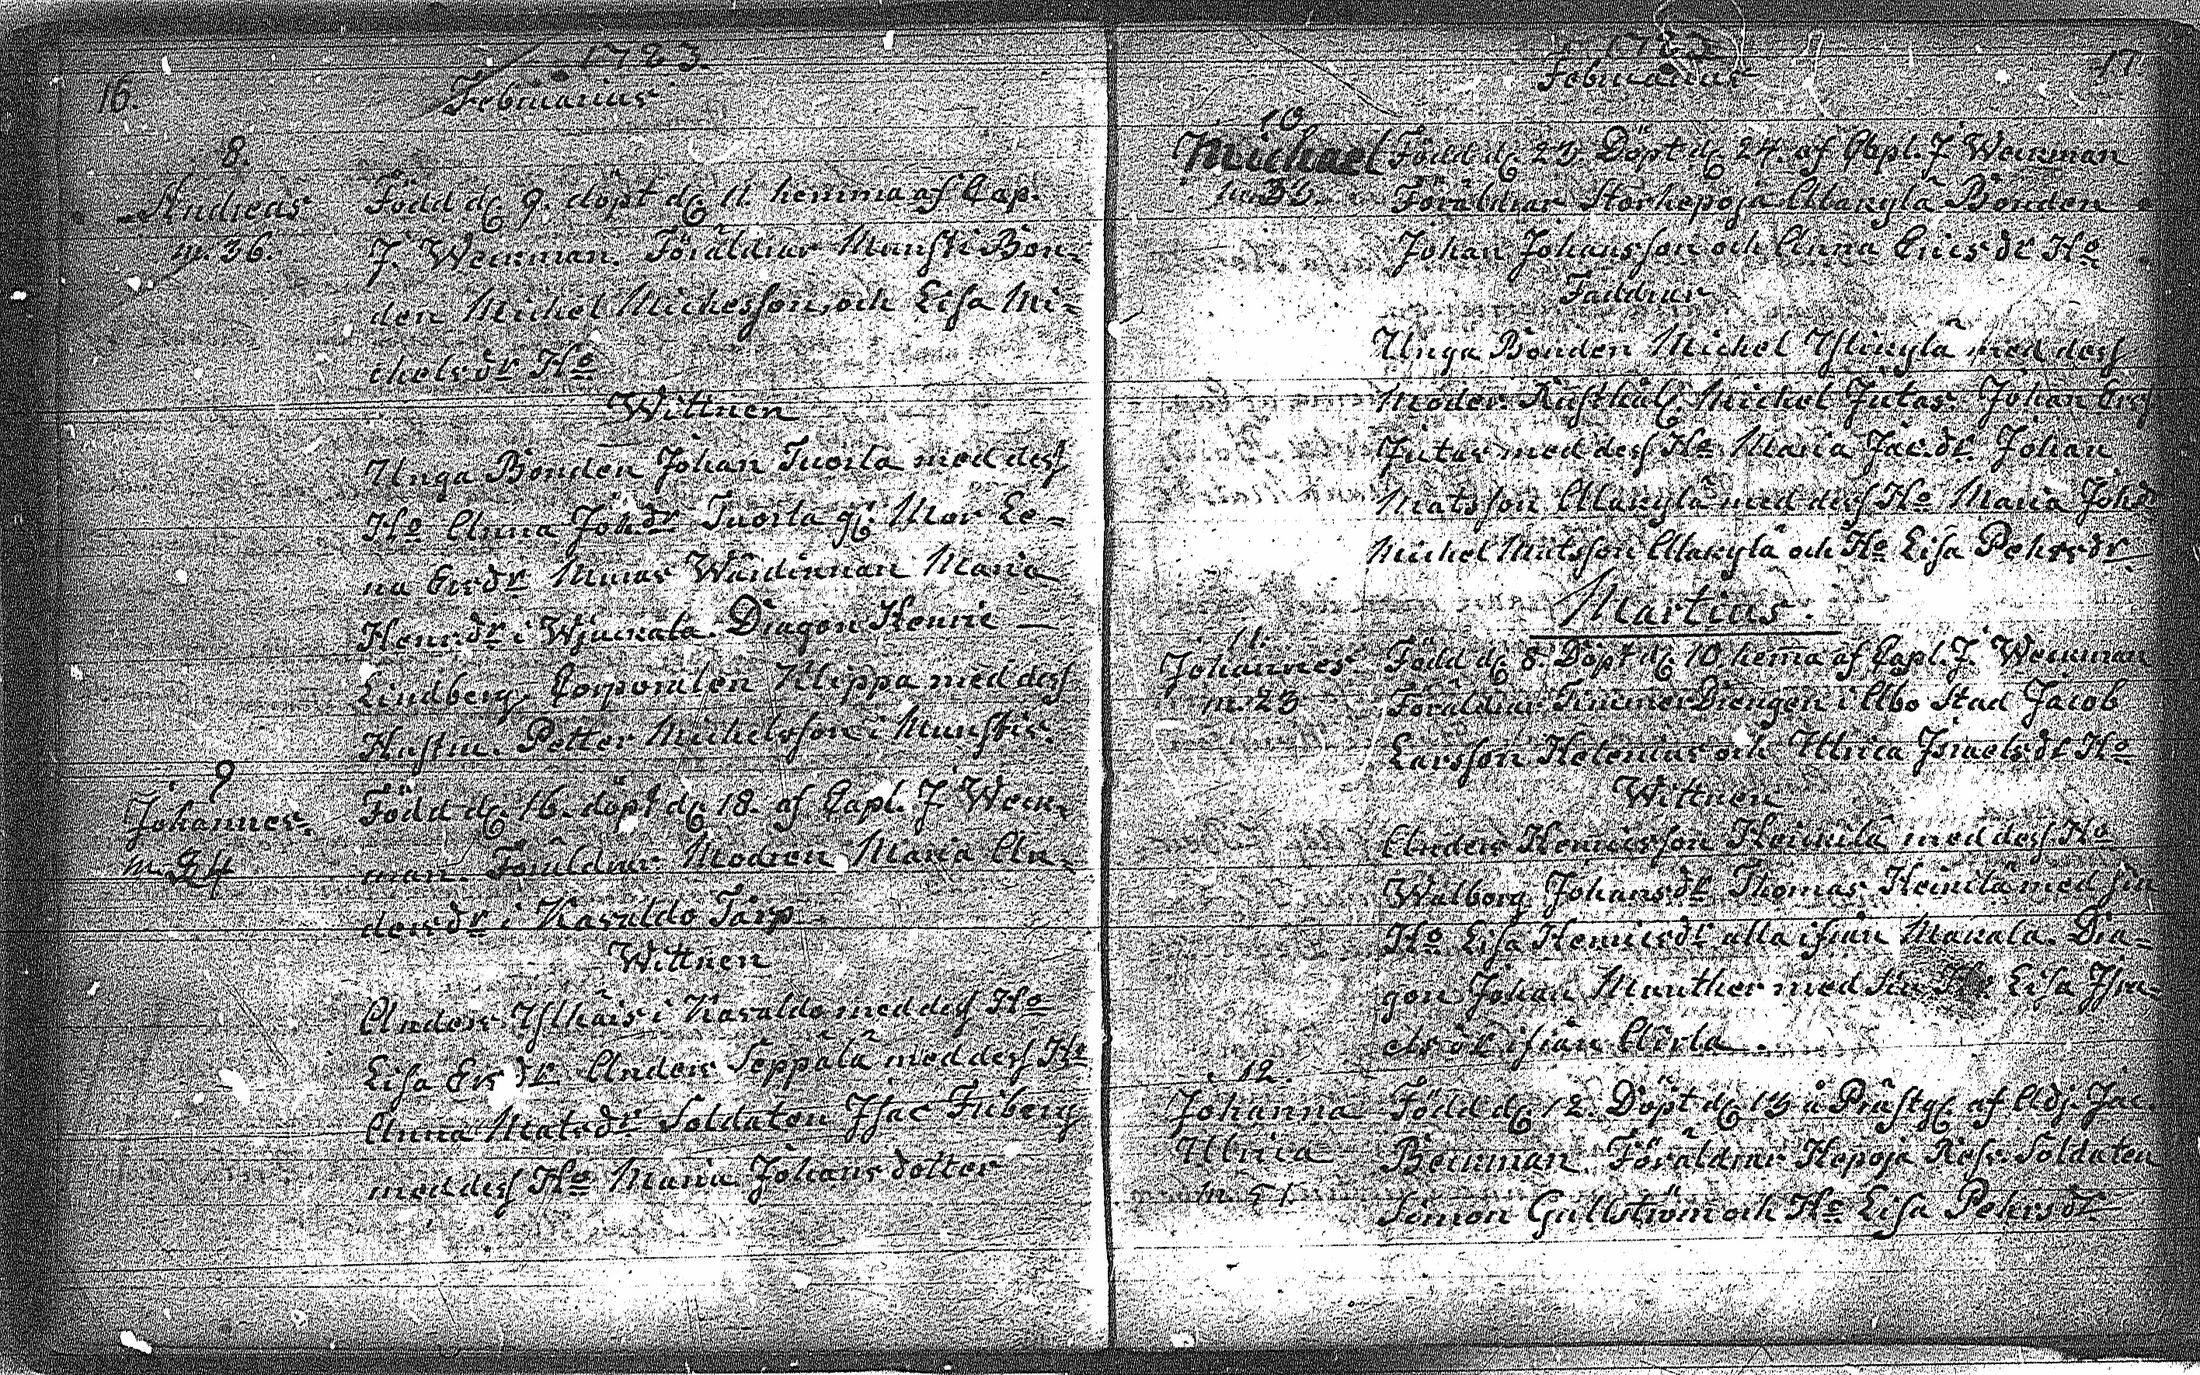 16.
1783.
Februarius
8.
Andreas
m. 36.
Född dꝭ 9. döpt dꝭ 11. hemma af Cap.
J. Weckman. Föräldrar Munsti Bon-
den Michel Michelsson, och Lisa Mi-
chelsdr Ho
Wittnen
Unga Bonden Johan Tuorla med dess
Ho Anna Johdr Tuorla gl. Mor Le-
na Ersdr Wärdinnan Maria
Henrsdr i Wjuckala. Dragon Henric
Lindberg. Corporalen Klippa med dess
Hustru. Petter Michelsson i Munstis.
9
Johannes.
m. 24
Född dꝭ 16. döpt dꝭ 18. af Capl. J. Weck-
man. Föräldrar Modren Maria An-
dersdr i Kavaldo Torp
Wittnen
Anders i Kavaldo med dess Ho
Lisa Ersdr Anders Seppälä med dess Ho
Anna Matsdr Soldaten Isac Friberg
med dess Ho Maria Johansdotter
17.
1783
Februarius
10
Michael
m. 33.
Född dꝭ 23. Döpt dꝭ 24. af Capl. J. Weckman
Föräldrar Storhepoja Allakylä Bonden
Johan Johansson och Anna Ericsdr Ho
Faddrar
Unga Bonden Michel Yllikylä med dess
Moder. Rusthål. Michel Jutas. Johan
Jutas med dess Ho Maria Jac.dr. Johan
Matsson Allakylä med dess Ho Maria Johd
Michel Matsson Allakylä och Ho Lisa Pehrsdr.
Martius.
11.
Johannes
m. 23
Född dꝭ 8. Döpt dꝭ 10 hem̃a af Capl. J. Weckman
Föräldrar TimmerDrengen i Åbo Stad Jacob
Larsson Helenius och Ulrica Israelsdr Ho
Wittnen
Anders Henricsson Heikkilä med dess Ho
Walborg Johansdr Thomas Heikkilä med sin
Ho Lisa Henricsdr alla ifrån Makala. Dra-
gon Johan Manther med sin Ho Lisa Isra-
elsdr ifrån
12.
Johanna
Ulrica
m.
Född dꝭ 12. Döpt dꝭ 13 å Prästg. af Adj. Jac.
Beckman. Föräldrar Hepoja Res. Soldaten
Simon Gullström och Ho Lisa Pehrsdr